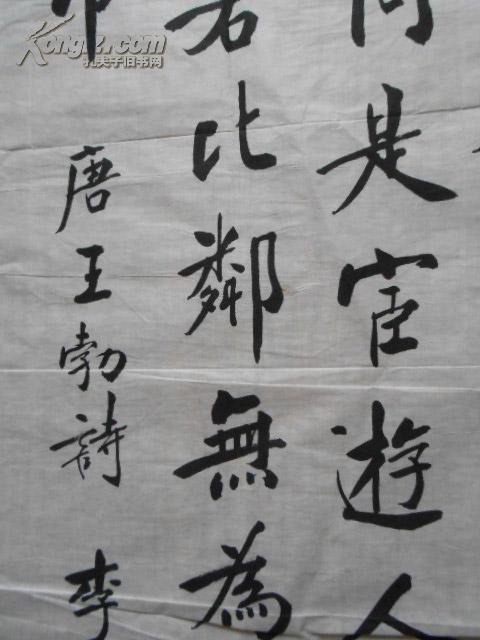 同是宦遊人
若比鄰無為
巾
唐王勃詩 李
Kongfz.com
孔夫子旧书网